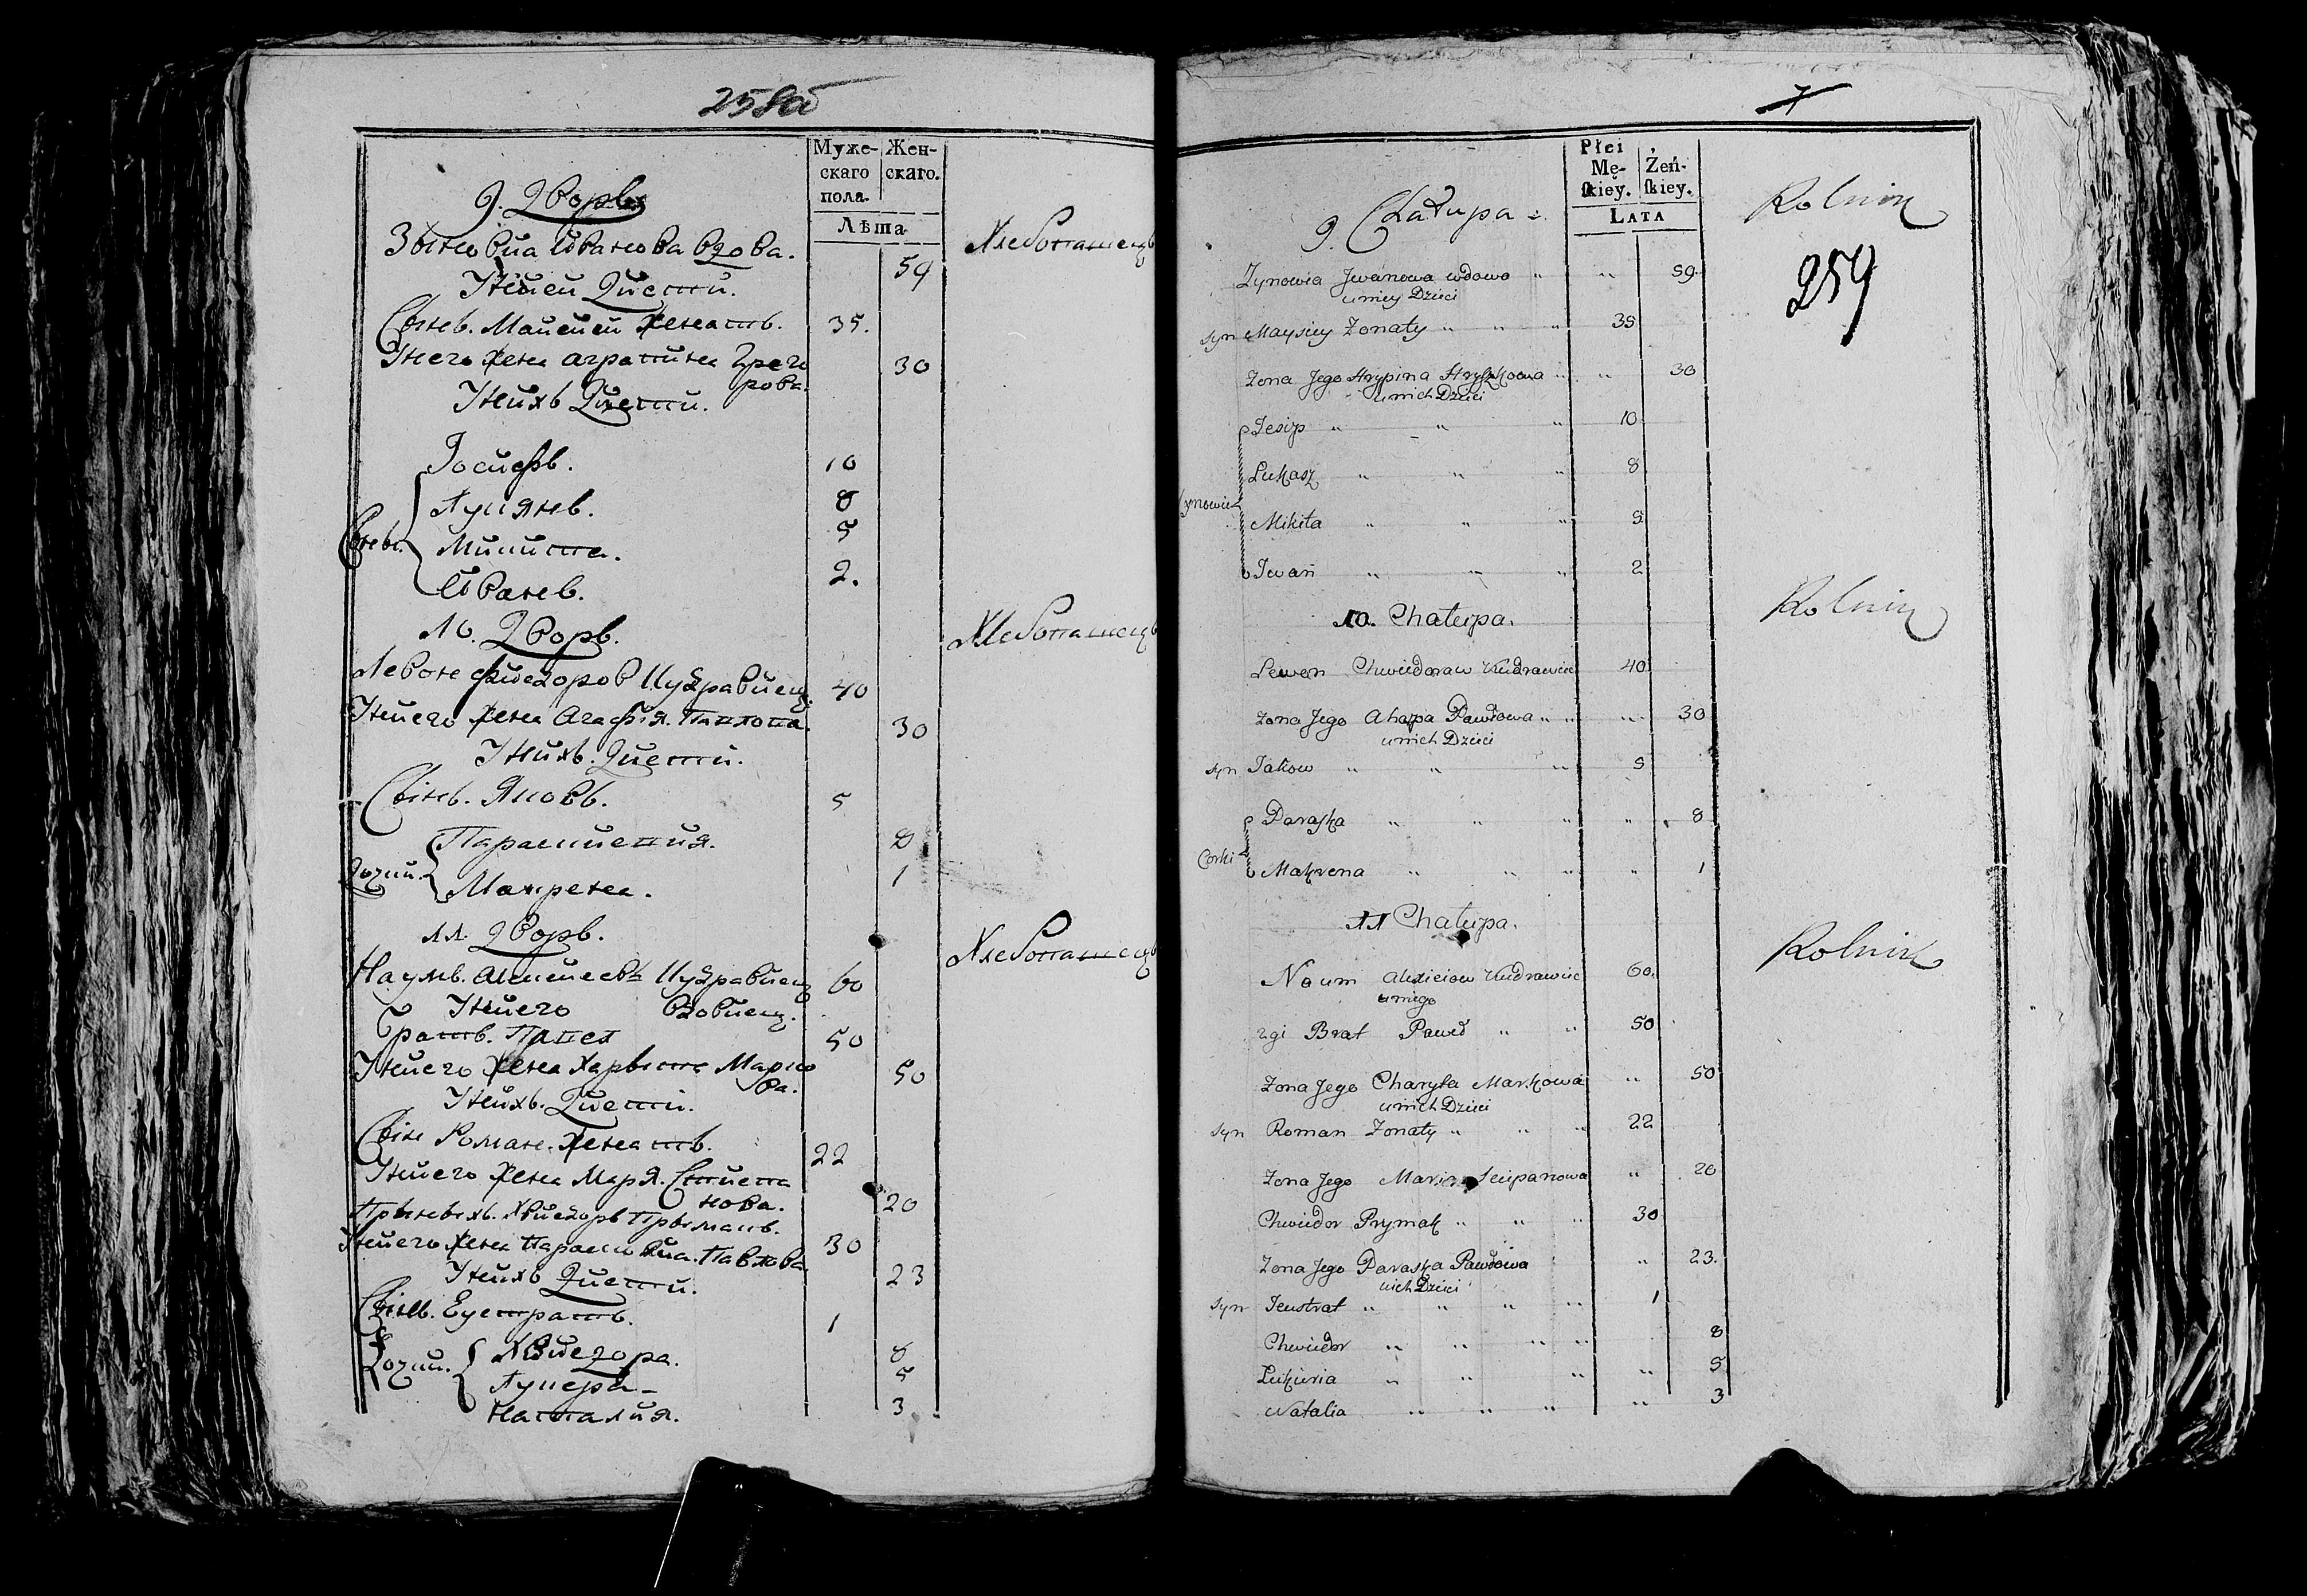 258об
Муже- Жен-
скаго скаго.
пола.
Лѣта
9. Дворъ
Хлебопашецъ
Зыновиа Иванова вдова. 59
У ней Дѣти.
Сынъ. Майсей Женатъ. 35.
У него жена Аграпина Григо 30
рова.
У нихъ Дѣти.
Іосифъ. 10
Лукянъ. 8
Сыны. Микита. 5
Иванъ. 2.
10. Дворъ.
Хлебопашецъ
Левон Фиедоров Кудравиец. 40
У него жена Агафія. Павлова. 30
У нихъ. Дѣти.
Сынъ. Яковъ. 5
Парашкевия. 8
Дочки. Макрена. 1
11. Дворъ.
Хлебопашецъ
Наумъ. Алексеевъ Кудравиец 60
У него вдовиец.
Братъ. Павел 50
У него жена Харыта Марко 50
ва.
У нихъ. Дѣти.
Сын Роман. Женатъ. 22
У него жена Маря. Стиепа
нова. 20
Хвиедоръ Прымакъ. 30
У него жена Параскивиа. Павлова 23
У нихъ Дѣти.
Сынъ. Еустратъ. 1
Дочки. Хвиедора. 8
Лукера 5
Наталия. 3
7
Płci
Mę- Żeń-
skiey. skiey.
LATA
9. Chałupa
Rolnik
259
Zynowia Jwanowa wdowa " " 59
u niey Dzieci
syn Maysiey Żonaty " " " 35
Żona Jego Hrypina Hryszkowa " " 30
u nich Dzieci
Josip " " " 10
Łukasz " " " 8
Synowie
Mikita " " " 5
Iwan " " " 2
10. Chałupa.
Rolnik
Lewon Chwiedorow Kudrawiec 40
Żona Jego Ahapa Pawłowa " " " 30
u nich Dzieci
syn Jakow " " " 5
Paraska " " " " 8
Corki
Makrena " " " " 1
11 Chałupa.
Rolnik
Noum Alexieiow Kudrawiec 60.
u niego
2gi Brat Paweł " " 50
Żona Jego Charyta Markowa " 50
u nich Dzieci
syn Roman Żonaty " " " 22
Żona Jego Maria Sciepanowa " 20
Chwiedor Prymak " " " 30
Żona Jego Paraska Pawłowa " 23.
u nich Dzieci
syn Jeustrat " " " " 1
Chwiedor " " " " 8
Łukieria " " " " 5
Natalia " " " " 3